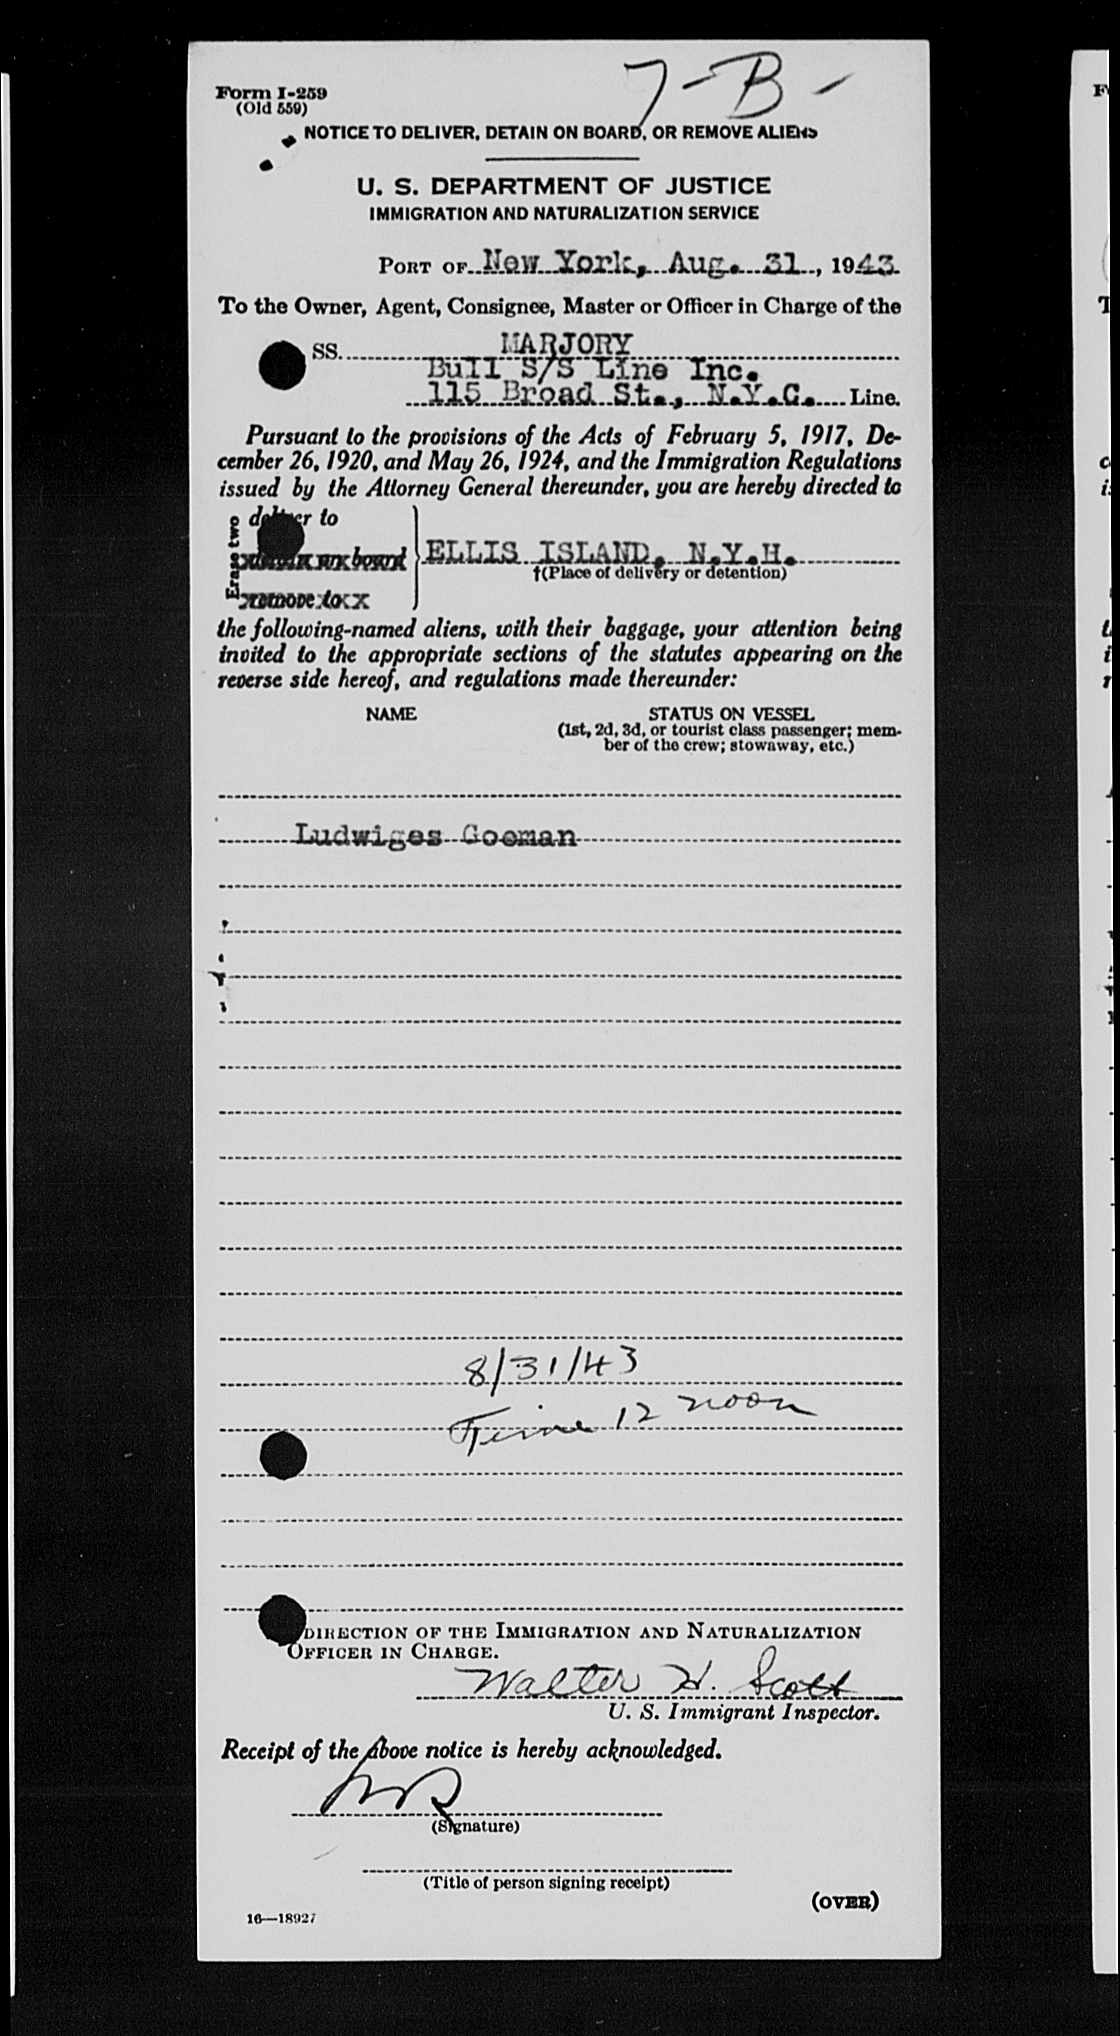 7-B-
Form I-259
(Old 559)
NOTICE TO DELIVER, DETAIN ON BOARD, OR REMOVE ALIENS
U. S. DEPARTMENT OF JUSTICE
IMMIGRATION AND NATURALIZATION SERVICE
PORT OF New York, Aug. 31, 1943
To the Owner, Agent, Consignee, Master or Officer in Charge of the
SS. MARJORY
Bull S/S Line Inc.
115 Broad St., N.Y.C. Line.
Pursuant to the provisions of the Acts of February 5, 1917, De-
cember 26, 1920, and May 26, 1924, and the Immigration Regulations
issued by the Attorney General thereunder, you are hereby directed to
Erase two
deliver to
board
ELLIS ISLAND, N.Y.H.
†(Place of delivery or detention)
remove to
the following-named aliens, with their baggage, your attention being
invited to the appropriate sections of the statutes appearing on the
reverse side hereof, and regulations made thereunder:
NAME STATUS ON VESSEL
(1st, 2d, 3d, or tourist class passenger; mem-
ber of the crew; stowaway, etc.)
Ludwiges Goeman
8/31/43
Time 12 noon
DIRECTION OF THE IMMIGRATION AND NATURALIZATION
OFFICER IN CHARGE.
Walter H. Scott
U. S. Immigrant Inspector.
Receipt of the above notice is hereby acknowledged.
(Signature)
(Title of person signing receipt)
(OVER)
16—18927